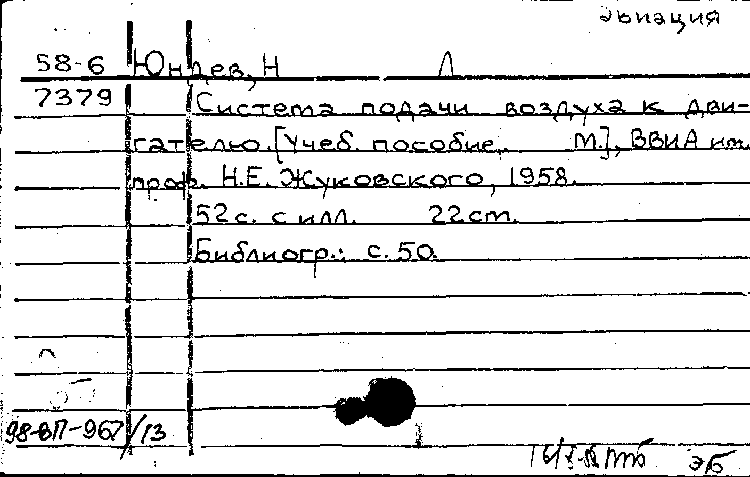 авиация
58-6 Юнцев, Н Л
7379 Система подачи воздуха к дви-
гателю. [Учеб. пособие. М.], ВВИА им.
проф. Н.Е. Жуковского, 1958.
52 с. с илл. 22 см.
Библиогр.: с. 50.
98-ВП-967/13
ЭБ